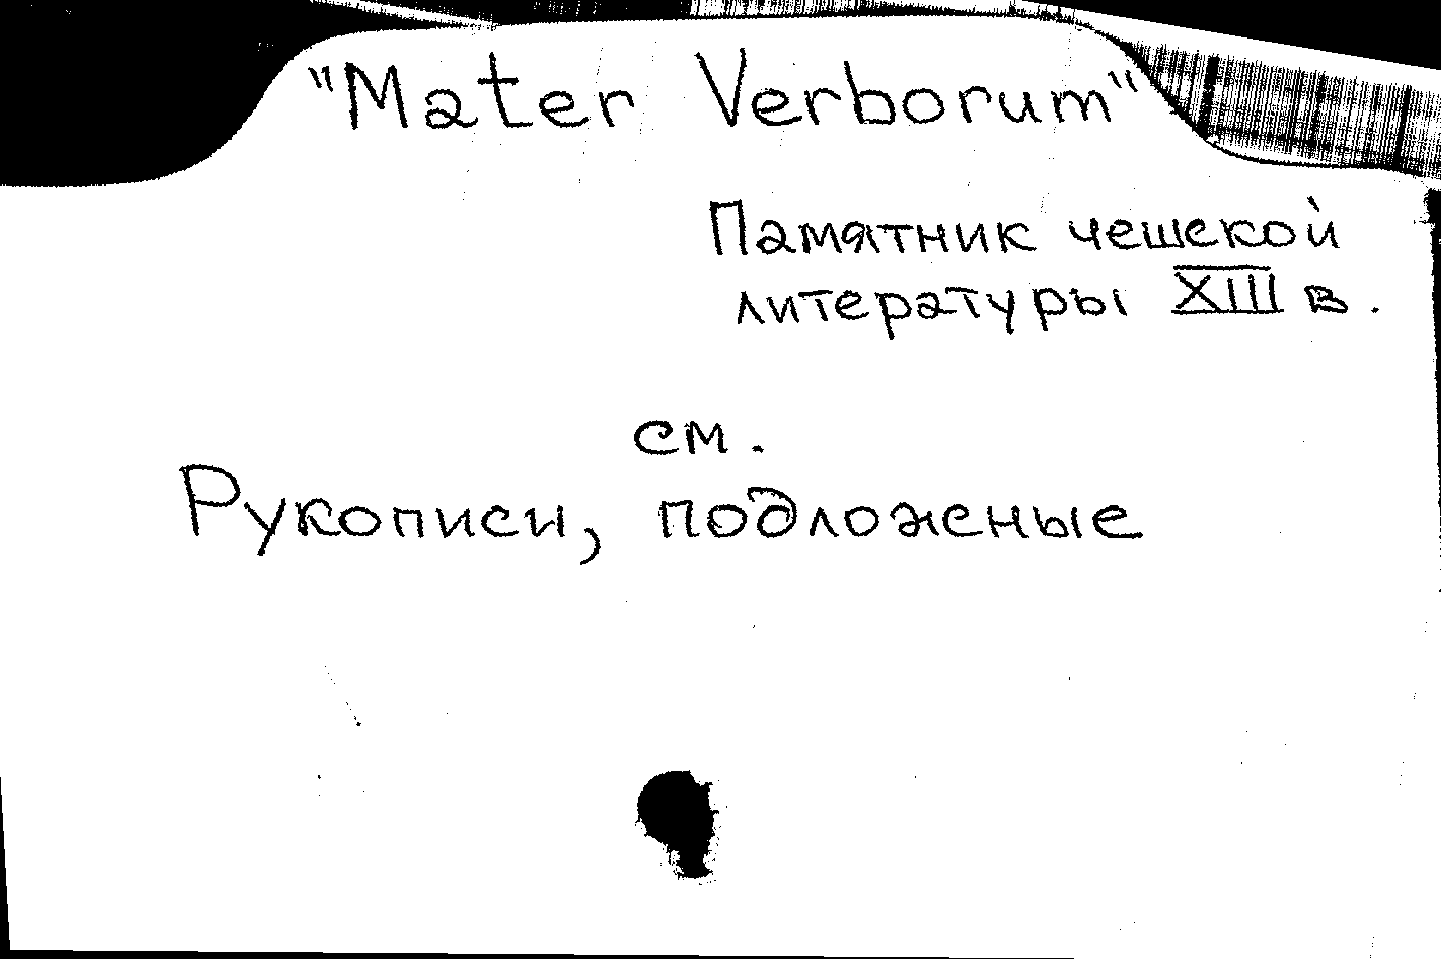 "Mater Verborum"
Памятник чешской
литературы XIII в.
см.
Рукописи, подложные